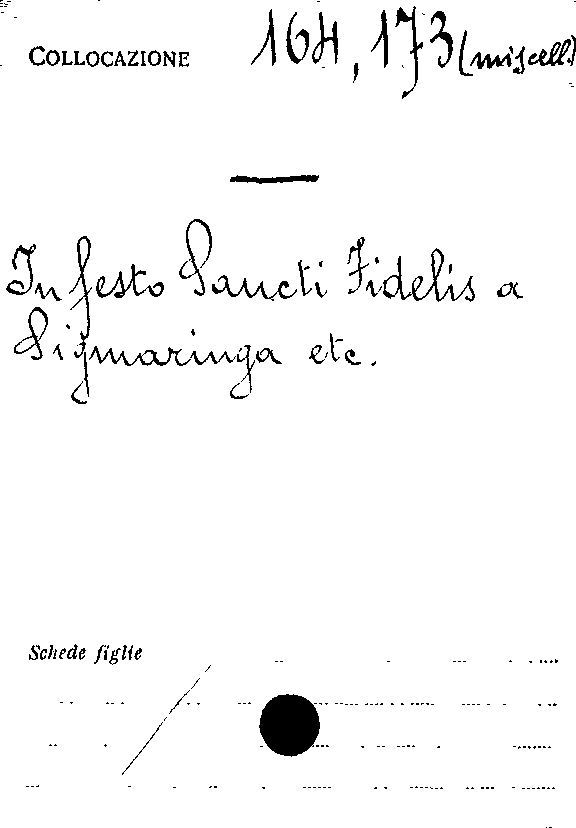 COLLOCAZIONE 164, 173 (miscell.)
In festo Sancti Fidelis a
Sigmaringa etc.
Schede figlie